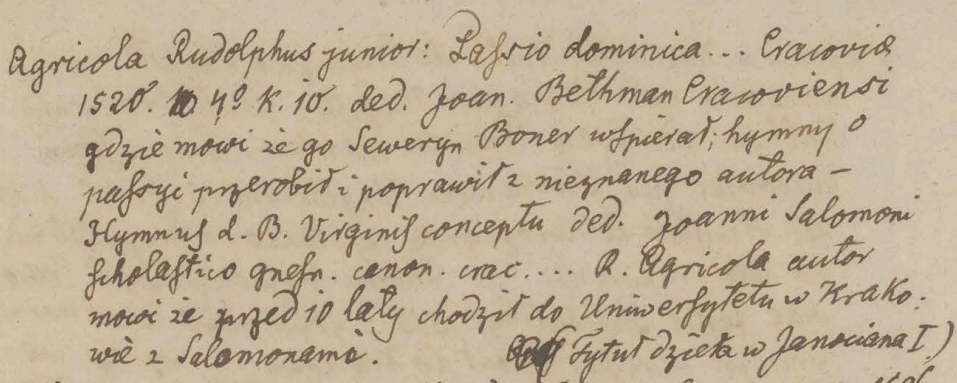 Agricola Rudolphus junior: Passio dominica... Cracoviæ
1520. 4º k. 10. ded. Joan. Bethman Cracoviensi
gdzie mowi że go Seweryn Boner wspierał; hymny o
passyi przerobił i poprawił z nieznanego autora –
Hymnus d. B. Virginis conceptu ded. Joanni Salomoni
scholastico gnesn. canon. crac.... R. Agricola autor
mowi że przed 10 laty chodził do Uniwersytetu w Krako-
wie z Salomonami. Tytuł dzieła w Janociana I.)